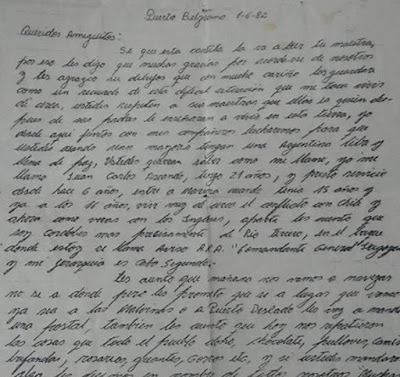 Puerto Belgrano 1-6-82
Queridos Amiguitos:
Se que esta cartita la va a leer tu maestra,
por eso les digo que muchas gracias por acordarse de nosotros
y les agrazco sus dibujos que con mucho cariño los guardare
como un recuerdo de esta dificil situación que me toca vivir
de cerca, ustedes respeten a sus maestros que ellos se quien des-
pues de sus padres le enseñaran a vivir en esta tierra, yo
desde aqui juntos con mis compañeros lucharemos para que
ustedes cuando sean mayores tengan una Argentina libre y
llena de paz. Ustedes querran saber como me llamo, yo me
llamo Juan Carlos tengo 21 años, y presto servicio
desde hace 6 años, entre a Marina cuando tenia 15 años y
ya a los 11 años, vivi muy de cerca el conflicto con Chile y
ahora como veran con los Ingleses, aparte les cuento que
soy cordobes mas precisamente de Rio Tercero, en el buque
donde estoy se llama Aviso A.R.A. "Comandante General"
y mi jerarquia es Cabo Segundo.
Les cuento que mañana nos vamos a navegar
no se a donde pero les prometo que si a lugar que vamos
ya sea a las Malvinas o a Puerto Deseado les voy a mandar
una postal, tambien les cuento que hoy nos repartieron
las cosas que todo el pueblo dobe, chocolate, pullover, camisa
bufandas, rosarios, guantes, gorro etc, y si ustedes mandaron
algo les decimos en nombre de todos nosotros